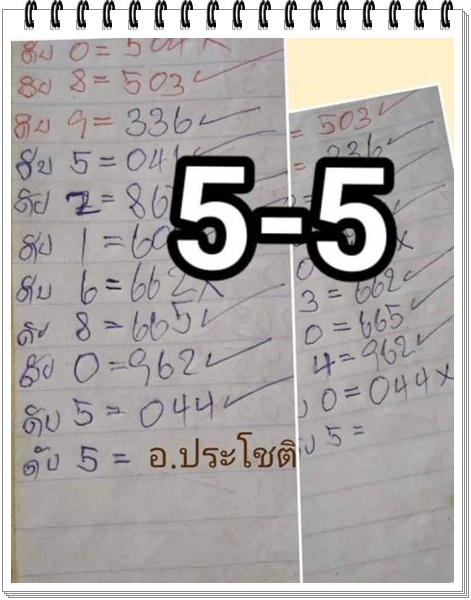 ดับ 0 = 504 X
ดับ 8 = 503 ✓
ดับ 9 = 336 ✓
ดับ 5 = 04
ดับ 2 = 86
ดับ 1 = 60
ดับ 6 = 662 X
ดับ 8 = 665 ✓
ดับ 0 = 962 ✓
ดับ 5 = 044 ✓
ดับ 5 =
อ.ประโชติ
5-5
= 503 ✓
= 336 ✓
0 X
3 = 662 ✓
0 = 665 ✓
4 = 962 ✓
0 = 044 X
5 =